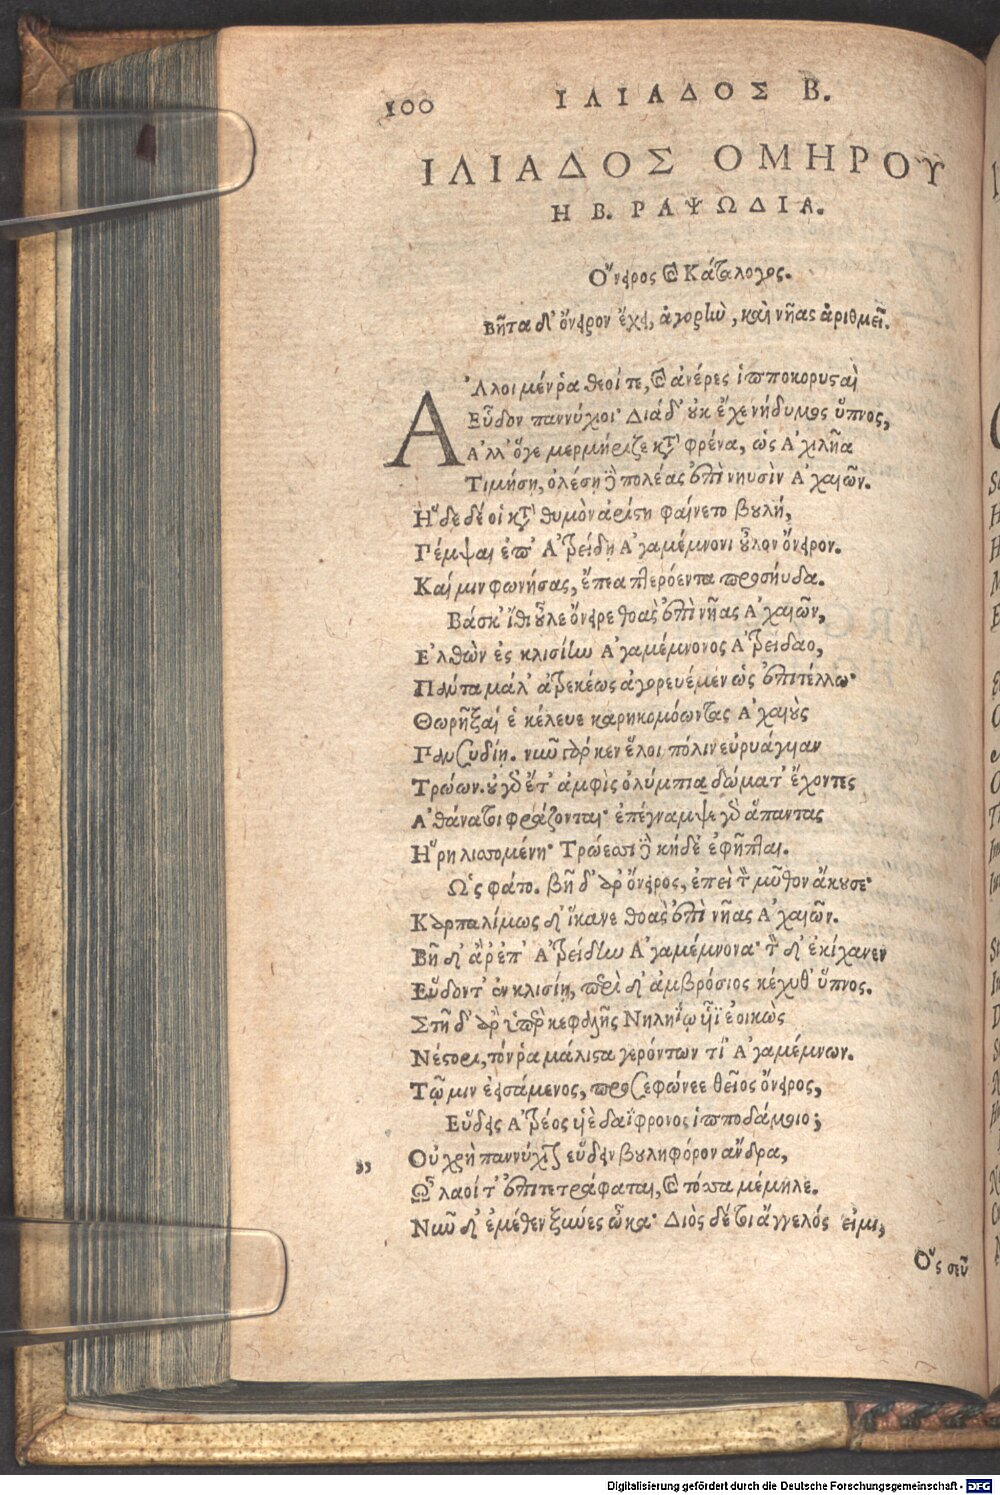 100 ΙΛΙΑΔΟΣ Β.
ΙΛΙΑΔΟΣ ΟΜΗΡΟΥ
Η Β. ΡΑΨΩΔΙΑ.
Ὄνειρος καὶ Κάταλογος.
Βῆτα δ' ὄνειρον ἔχει, ἀγορὴν, καὶ νῆας ἀριθμεῖ.
Ἄλλοι μέν ῥα θεοί τε, καὶ ἀνέρες ἱπποκορυσταὶ
Εὗδον παννύχιοι· Δία δ' οὐκ ἔχε νήδυμος ὕπνος,
Ἀλλ' ὅγε μερμήριζε κατὰ φρένα, ὡς Ἀχιλῆα
Τιμήσῃ, ὀλέσῃ δὲ πολέας ἐπὶ νηυσὶν Ἀχαιῶν.
Ἥδε δέ οἱ κατὰ θυμὸν ἀρίστη φαίνετο βουλή,
Πέμψαι ἐπ' Ἀτρείδῃ Ἀγαμέμνονι οὖλον ὄνειρον.
Καί μιν φωνήσας, ἔπεα πτερόεντα προσηύδα.
Βάσκ' ἴθι οὖλε ὄνειρε θοὰς ἐπὶ νῆας Ἀχαιῶν,
Ἐλθὼν ἐς κλισίην Ἀγαμέμνονος Ἀτρείδαο,
Πάντα μάλ' ἀτρεκέως ἀγορευέμεν ὡς ἐπιτέλλω·
Θωρῆξαί ἑ κέλευε καρηκομόωντας Ἀχαιοὺς
Πανσυδίῃ. νῦν γάρ κεν ἕλοι πόλιν εὐρυάγυιαν
Τρώων. οὐ γὰρ ἔτ' ἀμφὶς ὀλύμπια δώματ' ἔχοντες
Ἀθάνατοι φράζονται· ἐπέγναμψε γὰρ ἅπαντας
Ἥρη λισσομένη· Τρώεσσι δὲ κήδε' ἐφῆπται.
Ὣς φάτο. βῆ δ' ἄρ' ὄνειρος, ἐπεὶ τὸν μῦθον ἄκουσε·
Καρπαλίμως δ' ἵκανε θοὰς ἐπὶ νῆας Ἀχαιῶν.
Βῆ δ' ἄρ' ἐπ' Ἀτρείδην Ἀγαμέμνονα· τὸν δ' ἐκίχανεν
Εὕδοντ' ἐν κλισίῃ, περὶ δ' ἀμβρόσιος κέχυθ' ὕπνος.
Στῆ δ' ἄρ' ὑπὲρ κεφαλῆς Νηληΐῳ υἷϊ ἐοικὼς
Νέστορι, τόν ῥα μάλιστα γερόντων τῖ' Ἀγαμέμνων.
Τῷ μιν ἐεισάμενος, προσεφώνεε θεῖος ὄνειρος,
Εὕδεις Ἀτρέος υἱὲ δαΐφρονος ἱπποδάμοιο;
" Οὐ χρὴ παννύχιον εὕδειν βουληφόρον ἄνδρα,
ᾯ λαοί τ' ἐπιτετράφαται, καὶ τόσσα μέμηλε.
Νῦν δ' ἐμέθεν ξύνες ὦκα· Διὸς δέ τοι ἄγγελός εἰμι,
Ὃς σεῦ
Digitalisierung gefördert durch die Deutsche Forschungsgemeinschaft - DFG